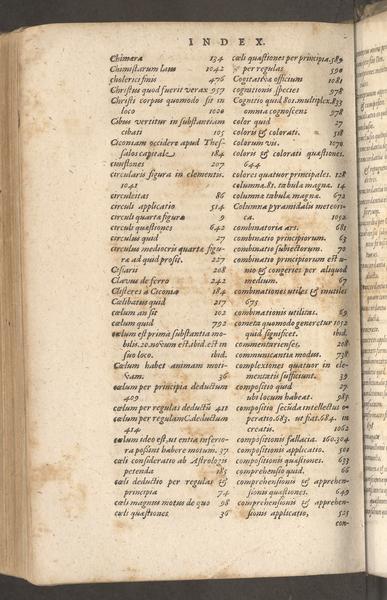 INDEX.
Chimæra 134
Chimistarum laus 1042
cholerici finis 476
Christus quod fuerit verax 957
Christi corpus quomodo sit in
loco 1020
Cibus vertitur in substantiam
cibati 105
Ciconiam occidere apud Thes-
salos capitale 184
cimiflones 207
circularis figura in elementis.
1041
circulestas 86
circuli applicatio 514
circuli quarta figura 9
circuli quæstiones 642
circulus quid 27
circulus mediocris quartæ figu-
ræ ad quid prosit. 227
Cisiaris 208
Clavus de ferro 242
Clisteres à Ciconia 184
Cælibatus quid 217
cælum an sit 102
cælum quid 792
cælum est prima substantia mo-
bilis. 20. novum est. ibid. est in
suo loco. ibid.
Cælum habet animam moti-
vam. 36
cælum per principia deductum
409
cælum per regulas deductũ 411
cælum per regulam C. deductum
414
cælum ideo est, ut entia inferio-
ra possint habere motum. 37
cæli consideratio ab Astrologis
petenda 185
cæli deductio per regulas &
principia 74
cæli magnus motus de quo 98
cæli quæstiones 36
cæli quæstiones per principia. 589
per regulas 590
Cogitativæ officium 1081
cognitionis species 978
Cognitio quid 801. multiplex. 833
omnia cognoscens 978
color quid 27
coloris & colorati. 518
colorum vis. 1070
coloris & colorati quæstiones.
644
colores quatuor principales. 128
columna. 81. tabula magna. 14
columnæ tabulæ magna. 672
Columna pyramidalis meteori-
ca. 1052
combinatoria ars. 681
combinatio principiorum. 63
combinatio subiectorum. 70
combinatio principiorum est u-
nio & congeries per aliquod
medium. 67
combinationes utiles & inutiles
675
combinationis utilitas. 69
cometa quomodo generetur 1052
quid significet. ibid.
commenturienses. 208
communicantia modus. 738
complexiones quatuor in ele-
mentatis sufficiunt. 39
compositio quid 27
ubi locum habeat. 985
compositio secũda intellectus o-
peratio. 683. ut fiat. 684. in
creatis. 1062
compositionis fallacia 160. 304
compositionis applicatio. 501
compositionis quæstiones. 633
comprehensio quid. 66
comprehensionis & apprehen-
sionis quæstiones. 649
comprehensionis & apprehen-
sionis applicatio, 525
con-